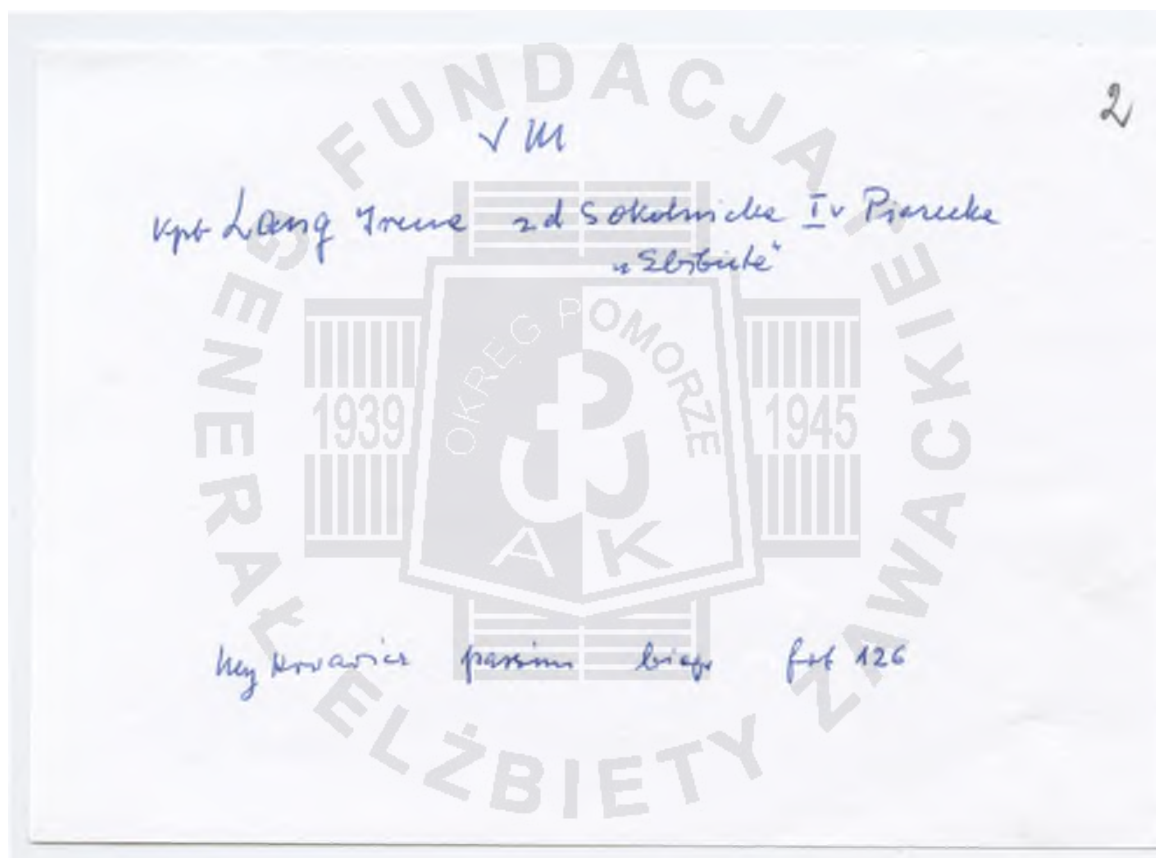 2
V M
kpt Lang Irena zd Sokolnicka I v Piasecka
„Elżbieta"
passim biogr fot 126
FUNDACJA
GENERAŁ ELŻBIETY ZAWACKIEJ
OKRĘG POMORZE
1939 1945
AK